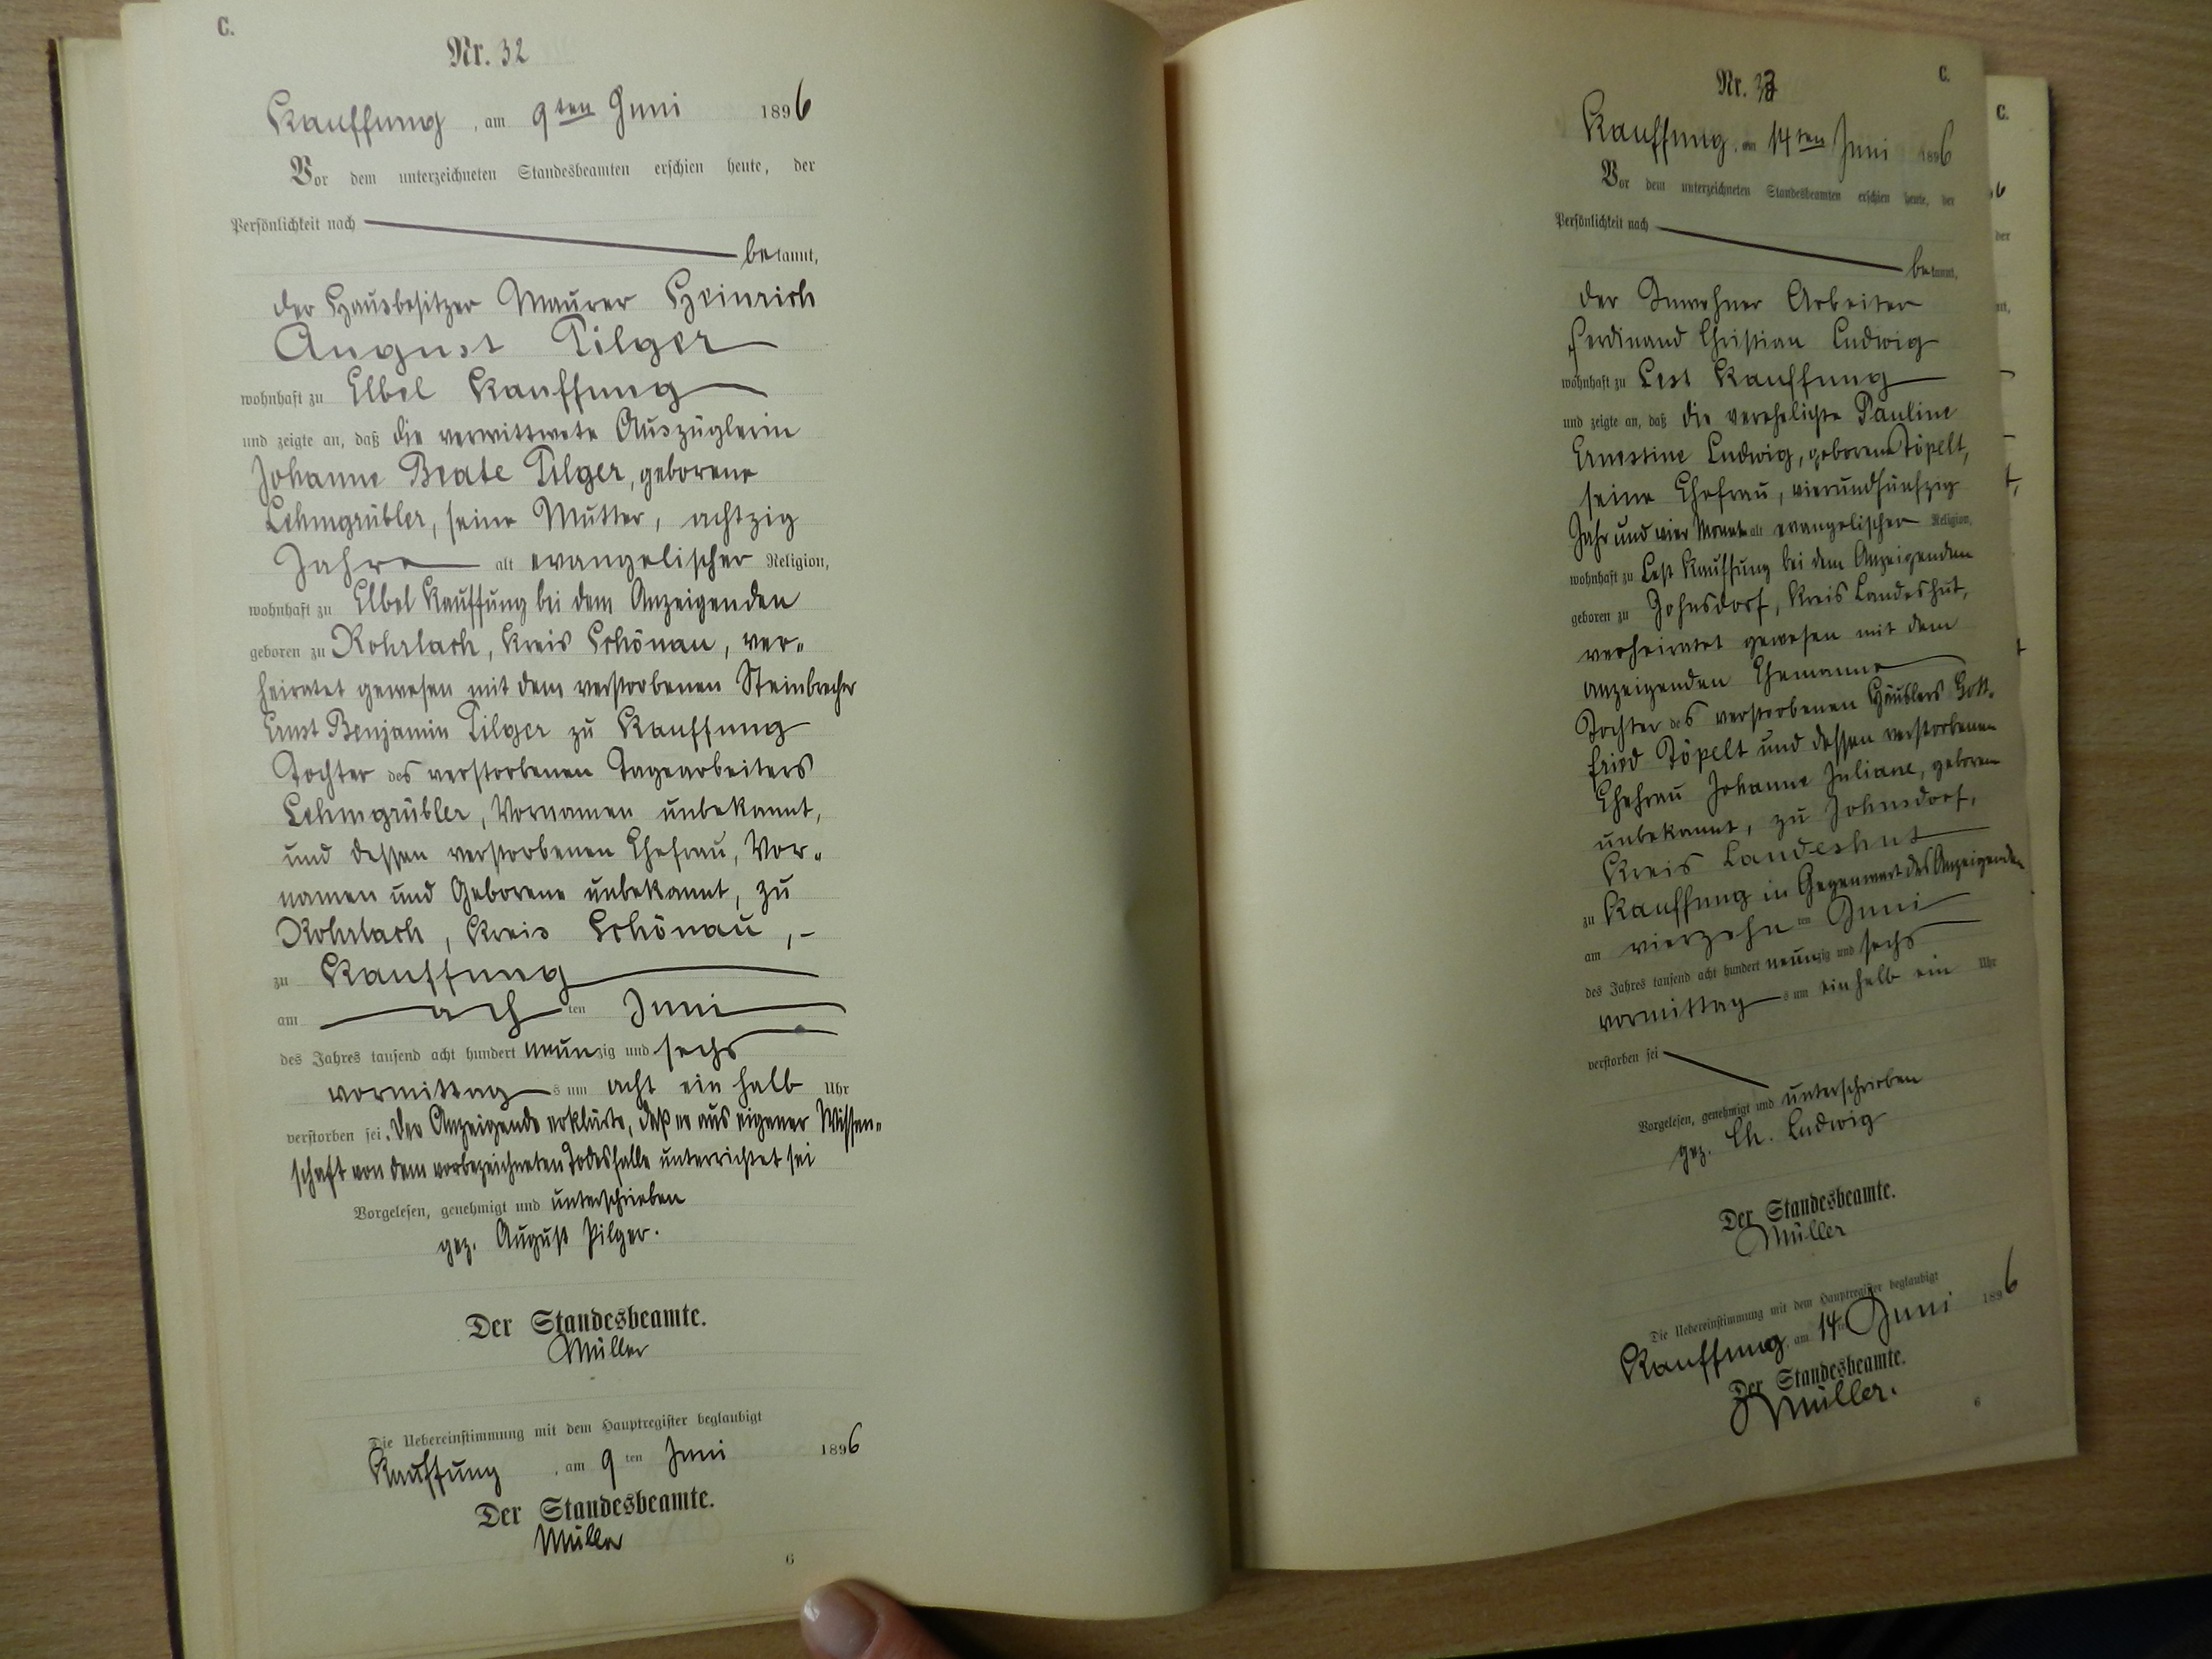 C.
Nr. 32
Kauffung, am 9ten Juni 1896
Vor dem unterzeichneten Standesbeamten erschien heute, der
Persönlichkeit nach
bekannt,
der Hausbesitzer Maurer Heinrich
August Pilger
wohnhaft zu Elbel Kauffung
und zeigte an, daß die verwittwete Auszüglerin
Johanne Beate Pilger, geborene
Lehmgrübler, seine Mutter, achtzig
Jahre alt evangelischer Religion,
wohnhaft zu Elbel Kauffung bei dem Anzeigenden
geboren zu Rohrlach, Kreis Schönau, ver-
heiratet gewesen mit dem verstorbenen Steinbrecher
Ernst Benjamin Pilger zu Kauffung
Tochter des verstorbenen Tagearbeiters
Lehmgrübler, Vornamen unbekannt,
und dessen verstorbenen Ehefrau, Vor-
namen und Geborene unbekannt, zu
Rohrlach, Kreis Schönau,-
zu Kauffung
am ach ten Juni
des Jahres tausend acht hundert neunzig und sechs
vormittag s um acht ein halb Uhr
verstorben sei. Der Anzeigende erklärte, daß er aus eigener Wissen-
schaft von dem vorbezeichneten Todesfalle unterrichtet sei
Vorgelesen, genehmigt und unterschrieben
gez. August Pilger.
Der Standesbeamte.
Müller
Die Uebereinstimmung mit dem Hauptregister beglaubigt
Kauffung, am 9 ten Juni 1896
Der Standesbeamte.
Müller
6
C.
Nr. 33
Kauffung, am 14ten Juni 1896
Vor dem unterzeichneten Standesbeamten erschien heute, der
Persönlichkeit nach
bekannt,
der Inwohner Arbeiter
Ferdinand Christian Ludwig
wohnhaft zu Lest Kauffung
und zeigte an, daß die verehelichte Pauline
Ernestine Ludwig, geborene Töpelt,
seine Ehefrau, vierundfünfzig
Jahr und vier Monat alt evangelischer Religion,
wohnhaft zu Lest Kauffung bei dem Anzeigenden
geboren zu Johnsdorf, Kreis Landeshut,
verheiratet gewesen mit dem
anzeigenden Ehemanne
Tochter des verstorbenen Häuslers Gott-
fried Töpelt und dessen verstorbenen
Ehefrau Johanne Juliane, geborene
unbekannt, zu Johnsdorf,
Kreis Landeshut
zu Kauffung in Gegenwart des Anzeigenden
am vierzehn ten Juni
des Jahres tausend acht hundert neunzig und sechs
vormittag s um ein halb ein Uhr
verstorben sei
Vorgelesen, genehmigt und unterschrieben
gez. Ch. Ludwig
Der Standesbeamte.
Müller
Die Uebereinstimmung mit dem Hauptregister beglaubigt
Kauffung, am 14 ten Juni 1896
Der Standesbeamte.
Müller.
6
C.
6
der